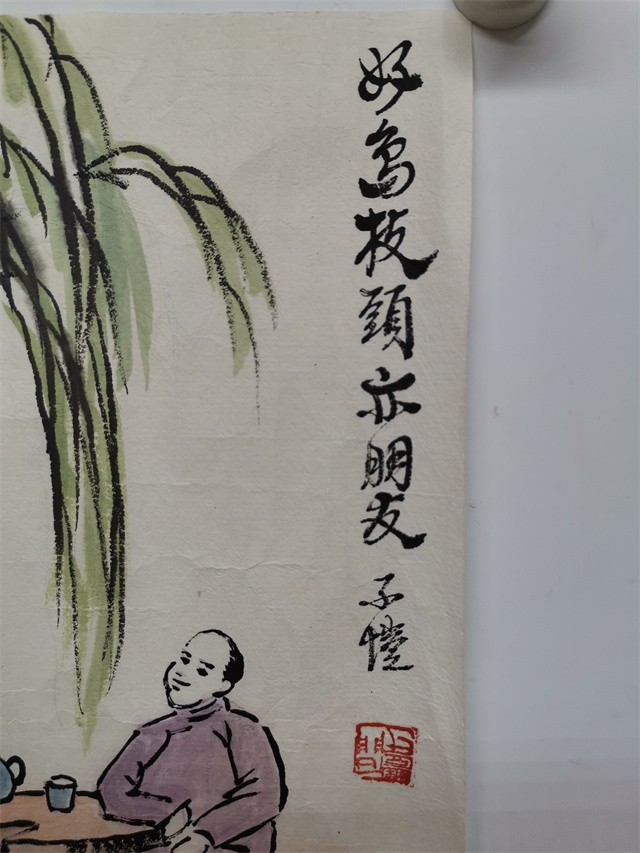 好鳥枝頭亦朋友
子愷